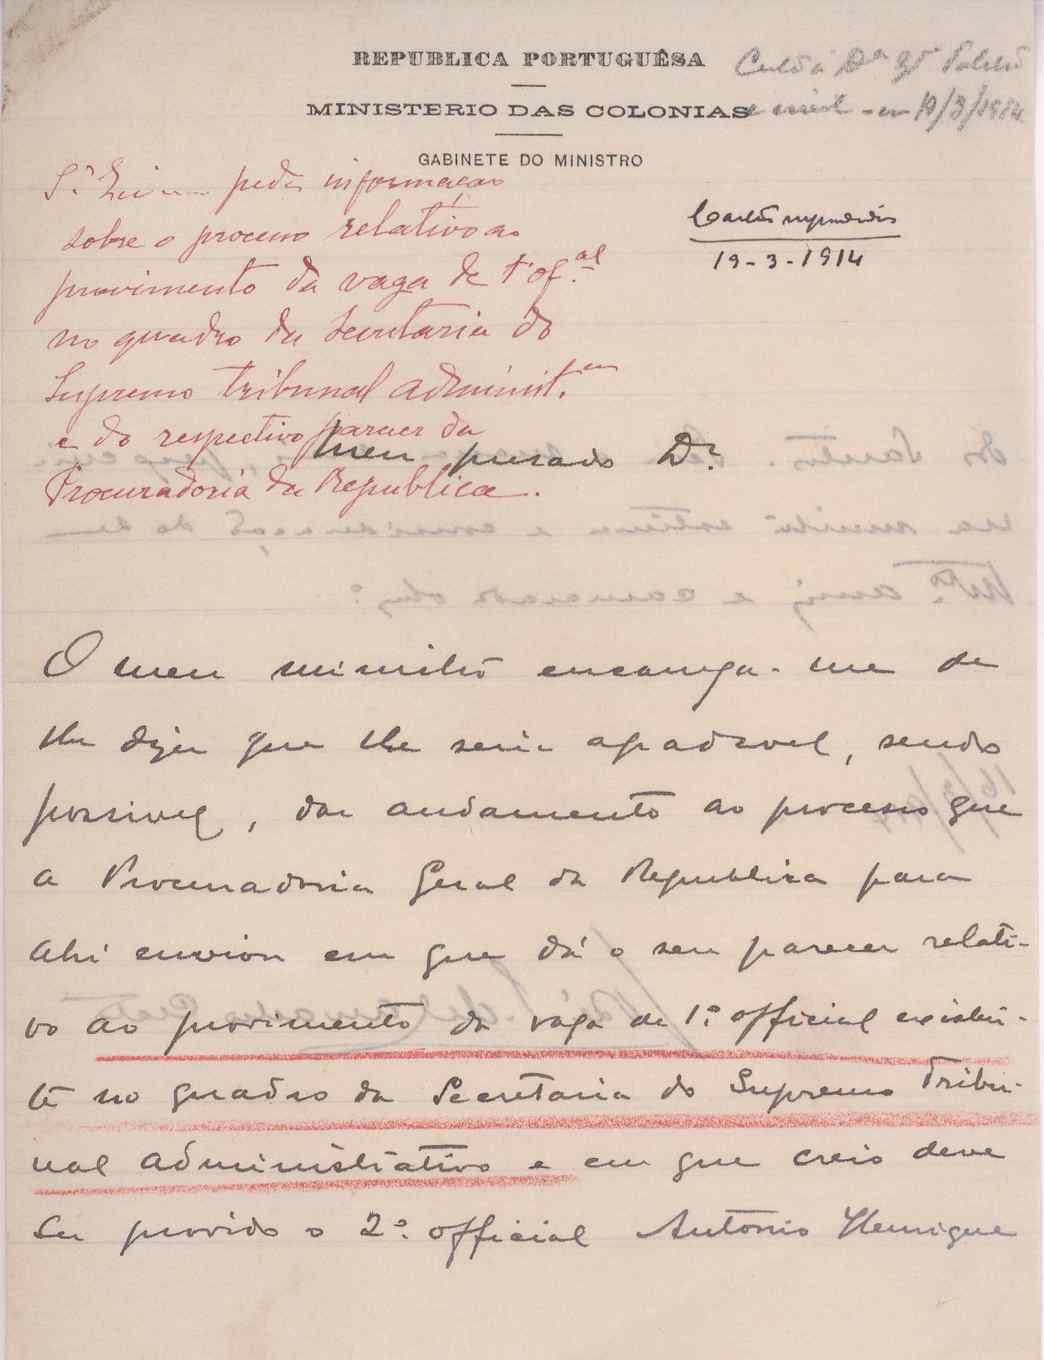 REPUBLICA PORTUGUÊSA
MINISTERIO DAS COLONIAS
GABINETE DO MINISTRO
em 19/3/1914
19-3-1914
pede informação
sobre o processo relativo ao
provimento da vaga de 1º of.al
no quadro da Secretaria do
Supremo tribunal administ.
e do respectivo parecer da
Procuradoria da Republica.
Meu presado Dr.
O meu ministro encarrega-me de
lhe dizer que lhe seria agradavel, sendo
possivel, dar andamento ao processo que
a Procuradoria Geral da Republica para
ahi enviou em que dá o seu parecer relati-
vo ao provimento da vaga de 1º official existen-
te no quadro da Secretaria do Supremo Tribu-
nal administrativo e em que creio deve
ser provido o 2º official Antonio Henrique